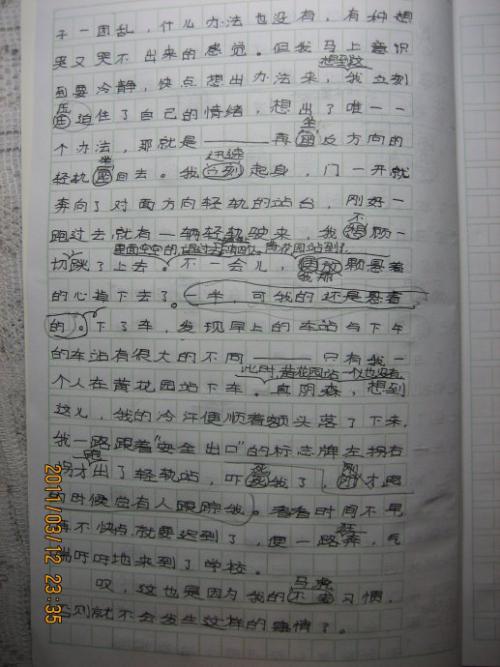 子一团乱，什么办法也没有，有种想
哭又哭不出来的感觉。但我马上意识
想到这
到要冷静，快点想出办法来，我立刻
压
迫住了自己的情绪，想出了唯一一
坐
个办法，那就是——再座反方向的
坐 迅速
轻轨座回去。我立刻起身，门一开就
奔向了对面方向轻轨的站台，刚好一
跑过去，就有一辆轻轨驶来，我想顾一
不
里面空空的，黄花园站到了。
切跳了上去。不一会儿，颗悬着
我那
的心落下去了。一半，可我的还是悬着
的。下了车，发现早上的车站与下午
的车站有很大的不同——只有我一
此时，黄花园站一个人也没有。
个人在黄花园站下车。真阴森，想到
这儿，我的冷汗便顺着额头落了下来，
我一路跟着"安全出口"的标志牌左拐右
跑 死 刚
拐才出了轻轨站，吓死我了，刚才跑
的时候总有人跟踪我。看看时间不早，
再不快点就要迟到了，便一路奔，气
狂
喘吁吁地来到了学校。
马虎
哎，这也是因为我的不要习惯，
否则就不会发生这样的事情了。
2011/03/12 23:35